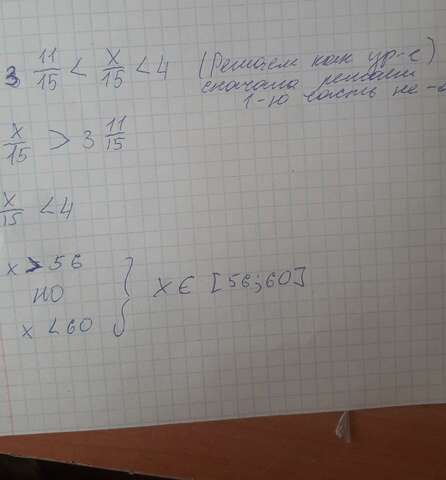 3 11/15 < x/15 < 4 (Решаем как ур-е)
сначала решаем
1-ю часть не-
x/15 > 3 11/15
x/15 < 4
x > 56
но
x < 60
x ∈ [56;60]